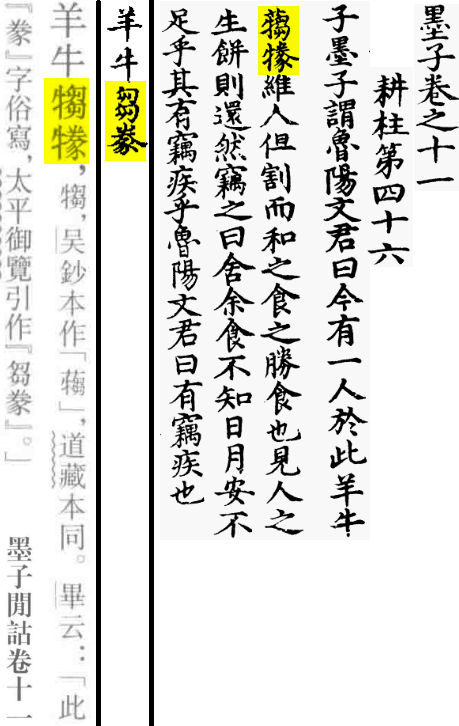 墨子卷之十一
耕柱第四十六
子墨子謂魯陽文君曰今有一人於此羊牛
維人但割而和之食之勝食也見人之
生餅則還然竊之曰舍余食不知日月安不
足乎其有竊疾乎魯陽文君曰有竊疾也
羊牛芻豢
羊牛犓，犓，吳鈔本作「」，道藏本同。畢云：「此
『豢』字俗寫，太平御覽引作『芻豢』。」 墨子閒詁卷十一